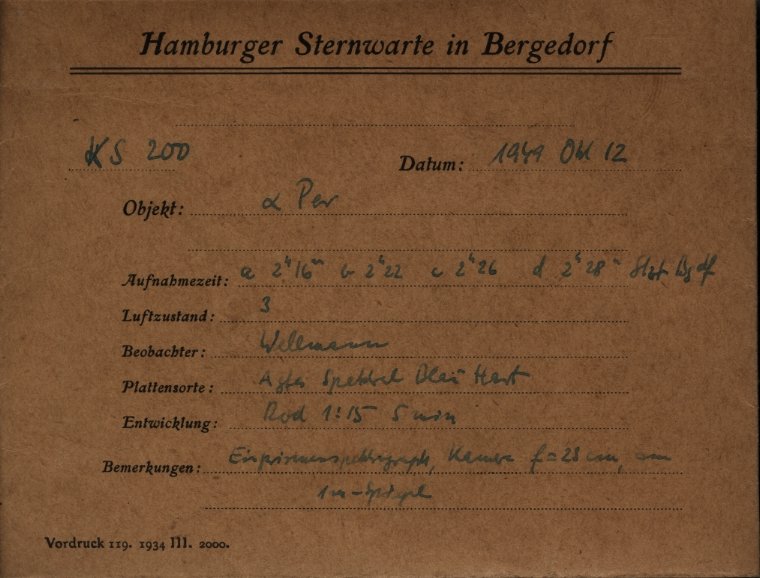 Hamburger Sternwarte in Bergedorf
KS 200 Datum: 1949 Okt 12
Objekt: α Per
Aufnahmezeit: a 2ʰ16ᵐ b 2ʰ22 c 2ʰ26 d 2ʰ28ᵐ Stzt Bgdf
Luftzustand: 3
Beobachter: Wellmann
Plattensorte: Agfa Spektral Blau Hart
Entwicklung: Rod 1:15 5 min
Bemerkungen: Einprismenspektrograph, Kamera f=28 cm, am
1m-Spiegel
Vordruck 119. 1934 III. 2000.